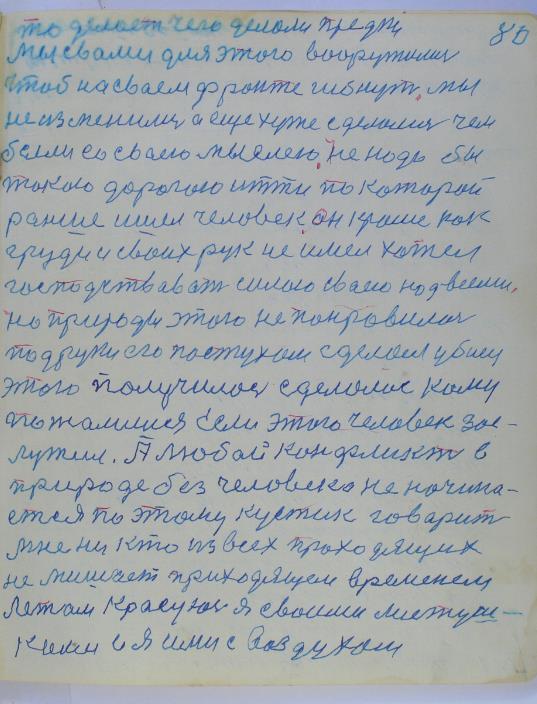 80
то делает чего делали преджи
Мы свами для этого вооружилис
чтоб на сваем фронте гибнут, мы
не изменилис а еще хуже сделалис чем
были со сваею мыслею, не нодь бы
токою дорогою итти по которой
раньше шел человек, он кроме как
груди и своих рук не имел хотел
господстват силою сваею над всеми,
но природи этого не понравилос
подруки его постухом сделал убиец
этого получилос сделалос кому
пожалишся если этого человек зас-
лужил. А любой конфликт в
природе без человека не начина-
ется поэтому кустик говарит
мне ни кто из всех проходящих
не мишает приходящем временем
летом Красуюс я своими листуш-
ками и я ими с воздухом